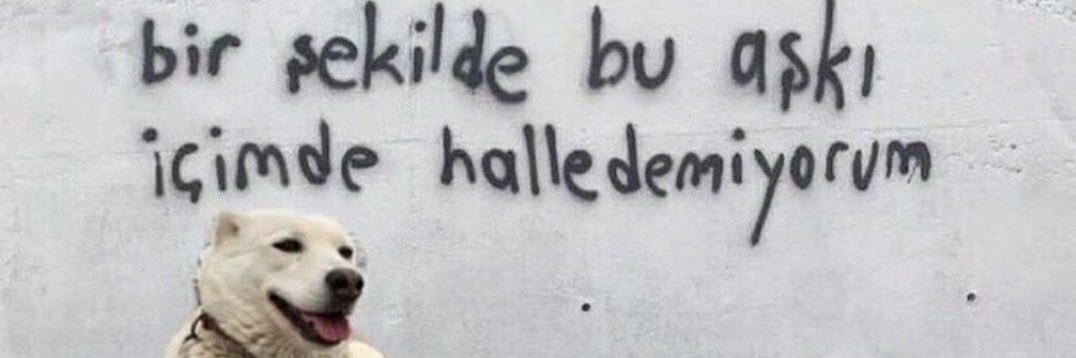 bir şekilde bu aşkı
içimde halledemiyorum